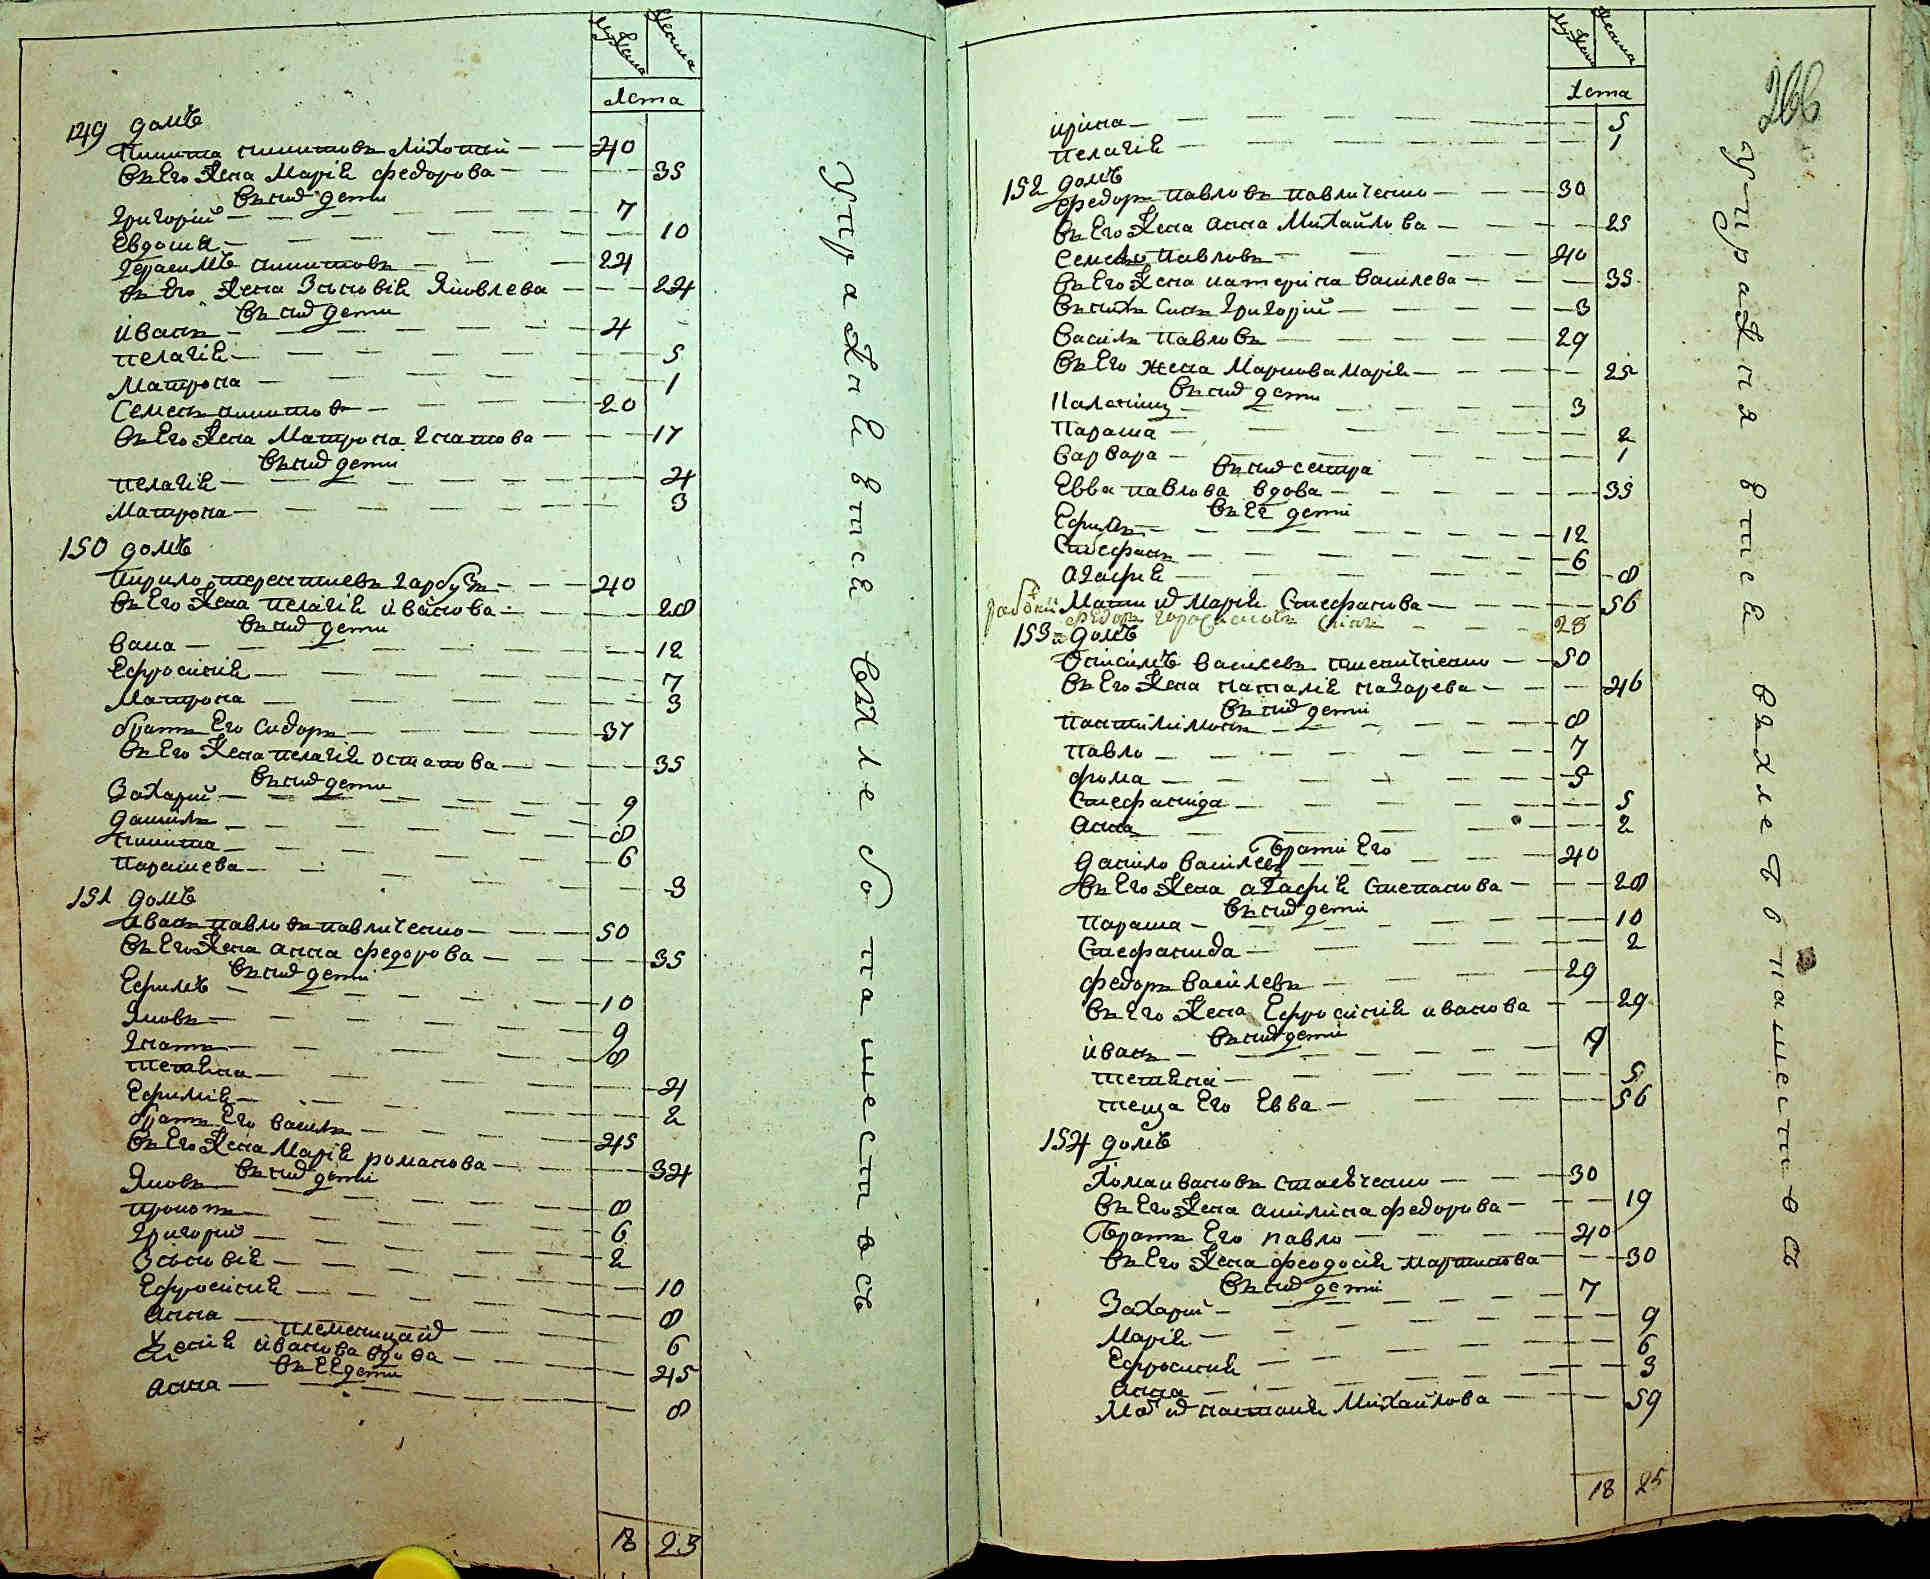 Мужеска
Женска
Лета
149 домъ
Никита никитовъ Лихотий 40
въ Его Жена Марія федорова 35
въ них дети
Григорій 7
Евдокия 10
Герасимъ никитовъ 24
въ Его Жена Зѣновія Яковлева 24
въ них дети
иванъ 4
пелагія 5
Матрона 1
Семенъ никитовъ 20
въ Его Жена Матрона Гнатова 17
въ них дети
пелагія 4
Матрона 3
150 домъ
Кирило терентиевъ Гарбузъ 40
въ Его Жена пелагія иванова 28
въ них дети
васа 12
Ефросинія 7
Матрона 3
братъ Его Сидоръ 37
въ Его Жена пелагія остапова 35
въ них дети
Захарій 9
данило 8
никита 6
парашева 3
151 домъ
иванъ павловъ павличенко 50
въ Его Жена анна федорова 35
въ них дети
Ефимъ 10
Яковъ 9
Гнатъ 8
тетяна 4
Ефимія 2
братъ Его василь 45
въ Его Жена Марія романова 34
въ них дети
Яковъ 8
прокопъ 6
Григорий 2
Зѣновія 10
Ефросинія 8
анна 6
племеница их
иванова вдова 45
въ Ее дети
анна 8
18 23
Упражнявтся вхлебопашествовъ
Мужеска
Женска
Лета
206
ирина 5
пелагія 1
152 домъ
федоръ павловъ павличенко 30
въ Его Жена анна Михайлова 25
Семенъ павловъ 40
въ Его Жена катерина василева 35
въ нихъ Синъ Григорій 3
василь павловъ 29
въ Его жена Маркова Марія 25
въ них дети
3
параша 2
варвара 1
въ них сестра
Евва павлова вдова 35
въ Ее дети
Ефимъ 12
Стефанъ 6
агафія 8
Мати их Марія Стефанова 56
федоръ 28
153 домъ
Онисимъ василевъ 50
въ Его Жена наталія назарева 46
въ них дети
пантилимонъ 8
павло 7
фома 5
Стефанида 5
анна 2
брати Его
данило василевъ 40
въ Его Жена агафія Степанова 28
въ них дети
параша 10
Стефанида 2
федоръ василевъ 29
въ Его Жена Ефросинія иванова 29
въ них дети
иванъ 9
тетяна 5
теща Его Евва 56
154 домъ
иванъ 30
въ Его Жена акилина федорова 19
братъ Его павло 40
въ Его Жена феодосія мартинова 30
въ них дети
Захарій 7
Марія 9
Ефросинія 6
анна 3
Мат их настасія Михайлова 59
18 25
Упражнявтся вхлебопашествовъ